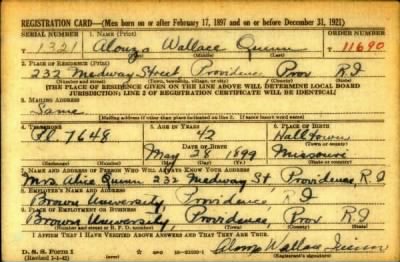 REGISTRATION CARD—(Men born on or after February 17, 1897 and on or before December 31, 1921)
SERIAL NUMBER 1. NAME (Print) ORDER NUMBER
T 1321 Alonzo Wallace Quinn T 11690
(First) (Middle) (Last)
2. PLACE OF RESIDENCE (Print)
232 Medway Street Providence Prov R I
(Number and street) (Town, township, village, or city) (County) (State)
[THE PLACE OF RESIDENCE GIVEN ON THE LINE ABOVE WILL DETERMINE LOCAL BOARD
JURISDICTION; LINE 2 OF REGISTRATION CERTIFICATE WILL BE IDENTICAL]
3. MAILING ADDRESS
Same
[Mailing address if other than place indicated on line 2. If same insert word same]
4. TELEPHONE 5. AGE IN YEARS 6. PLACE OF BIRTH
7648 42 Halltown
DATE OF BIRTH (Town or county)
May 28 1899 Missouri
(Exchange) (Number) (Mo.) (Day) (Yr.) (State or country)
7. NAME AND ADDRESS OF PERSON WHO WILL ALWAYS KNOW YOUR ADDRESS
Mrs Alice Quinn 232 Medway St, Providence, R I
8. EMPLOYER'S NAME AND ADDRESS
Brown University, Providence, R I
9. PLACE OF EMPLOYMENT OR BUSINESS
Brown University, Providence, Prov R I
(Number and street or R. F. D. number) (Town) (County) (State)
I AFFIRM THAT I HAVE VERIFIED ABOVE ANSWERS AND THAT THEY ARE TRUE.
D. S. S. FORM 1
(Revised 1-1-42) (over)
Alonzo Wallace Quinn
(Registrant's signature)